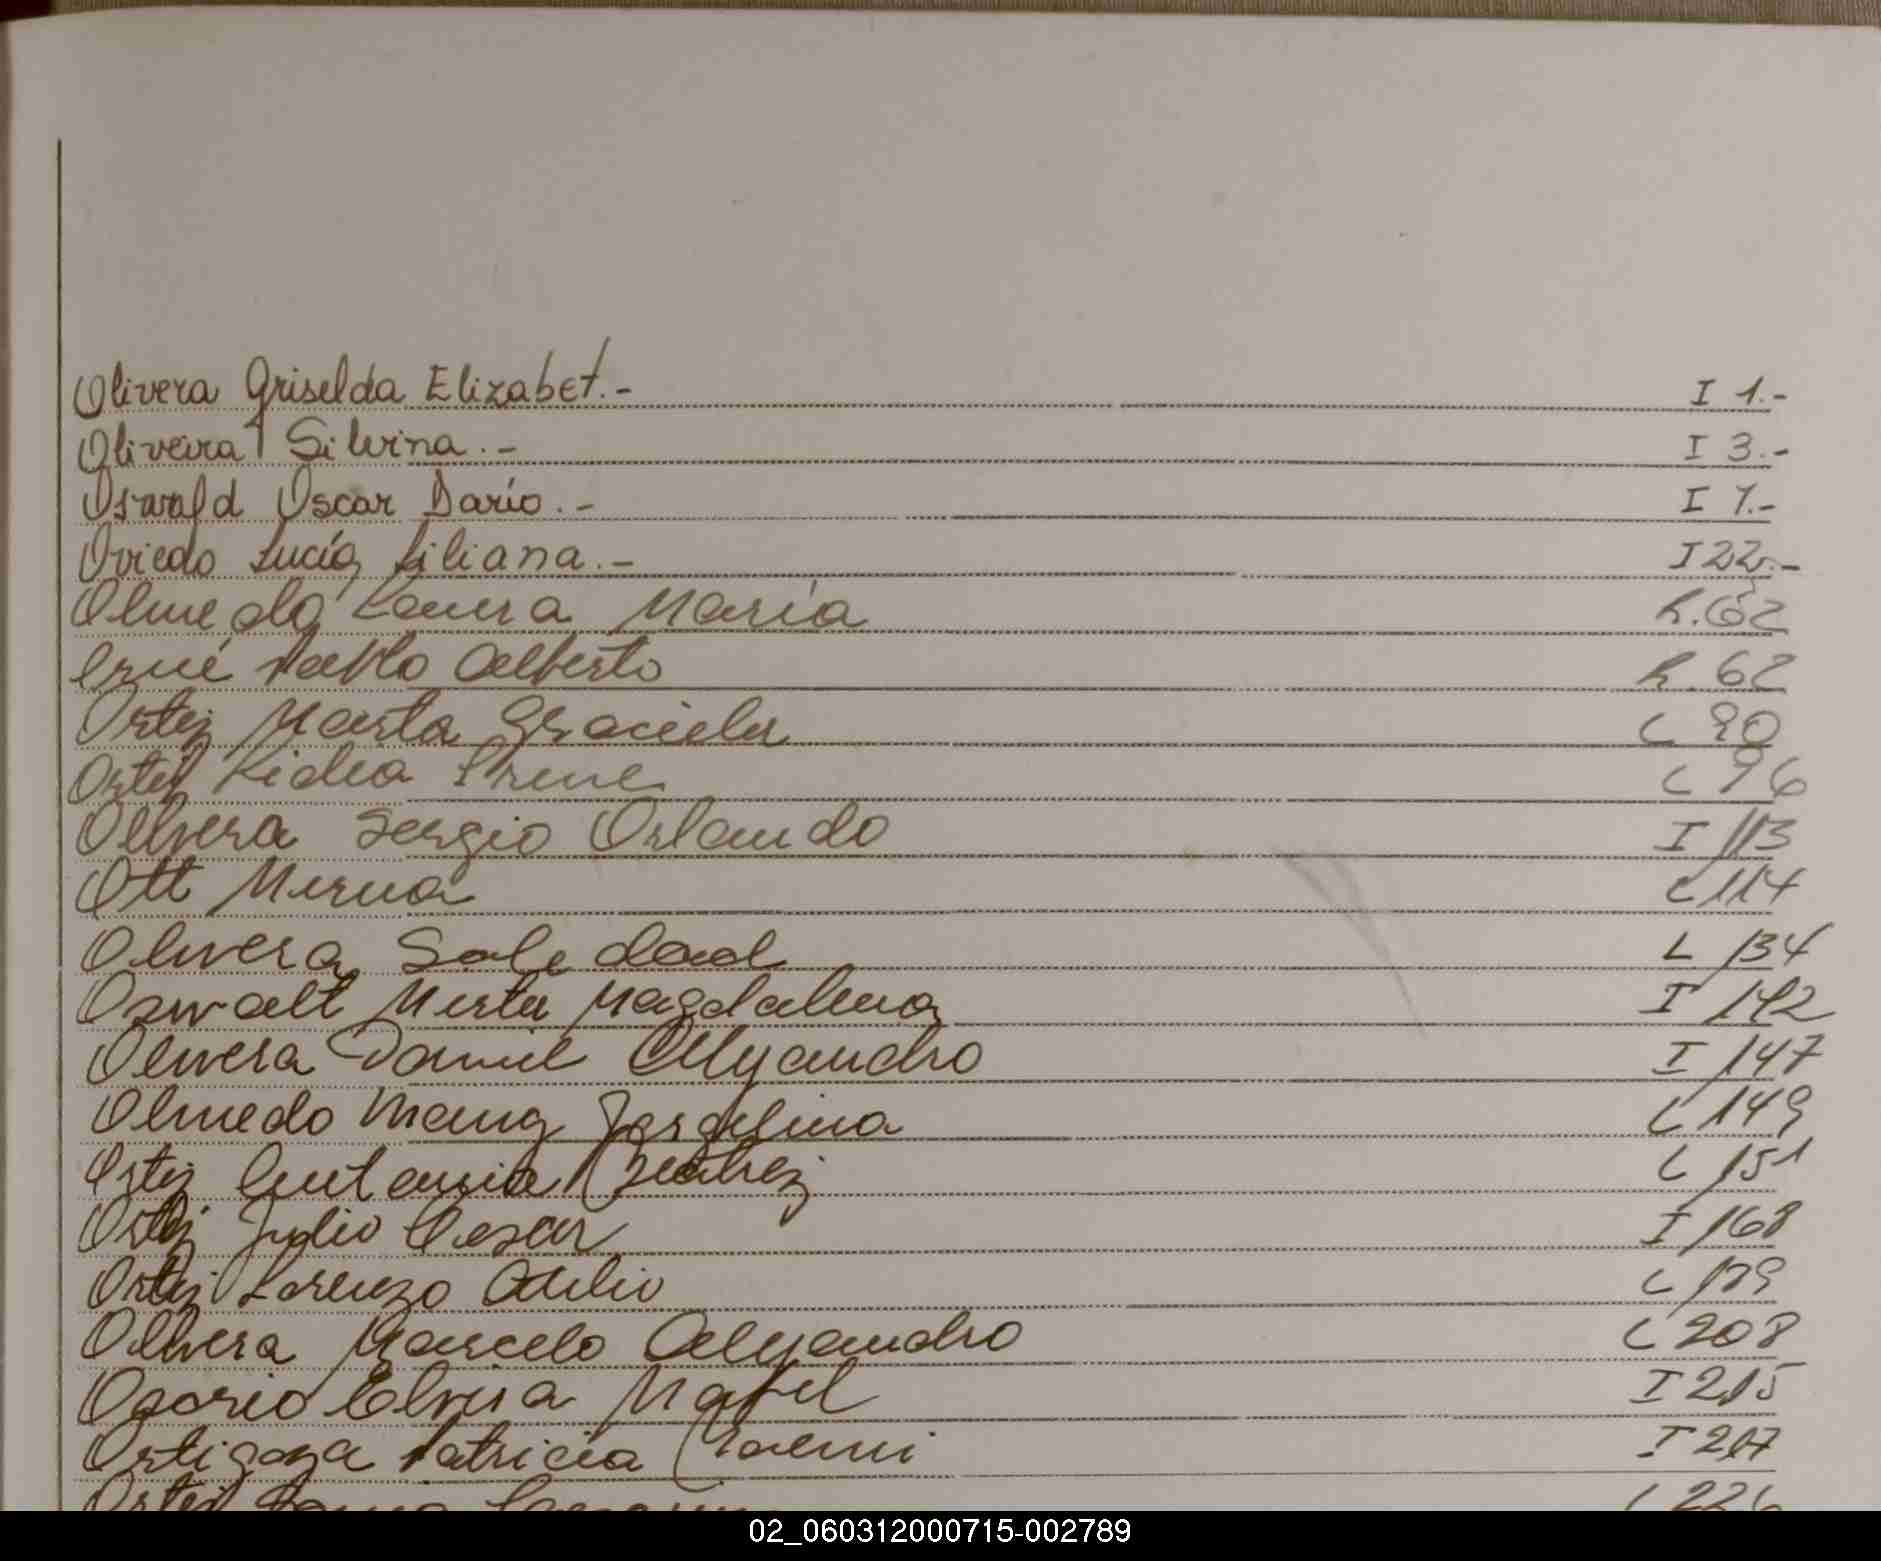 Olivera Griselda Elizabet.- I 1.-
Oliveira Silvina.- I 3.-
Oswald Oscar Darío.- I 7.-
Oviedo Lucía Liliana.- I 22.-
Olmedo Laura María L. 62
Pablo Alberto L. 62
Ortiz Marta Graciela L 90
Ortiz Lidia Irene L 96
Olivera Sergio Orlando I 113
Ott Mirna L 114
Olivera Soledad L 134
Oswalt Mirta Magdalena I 142
Olivera Daniel Alejandro I 147
Olmedo L 149
Ortiz Beatriz L 151
Ortiz Julio Cesar I 168
Ortiz Lorenzo Atilio L 179
Olivera Marcelo Alejandro L 208
Osorio Elvira Mabel I 215
Ortigoza Patricia Noemi I 217
02_060312000715-002789